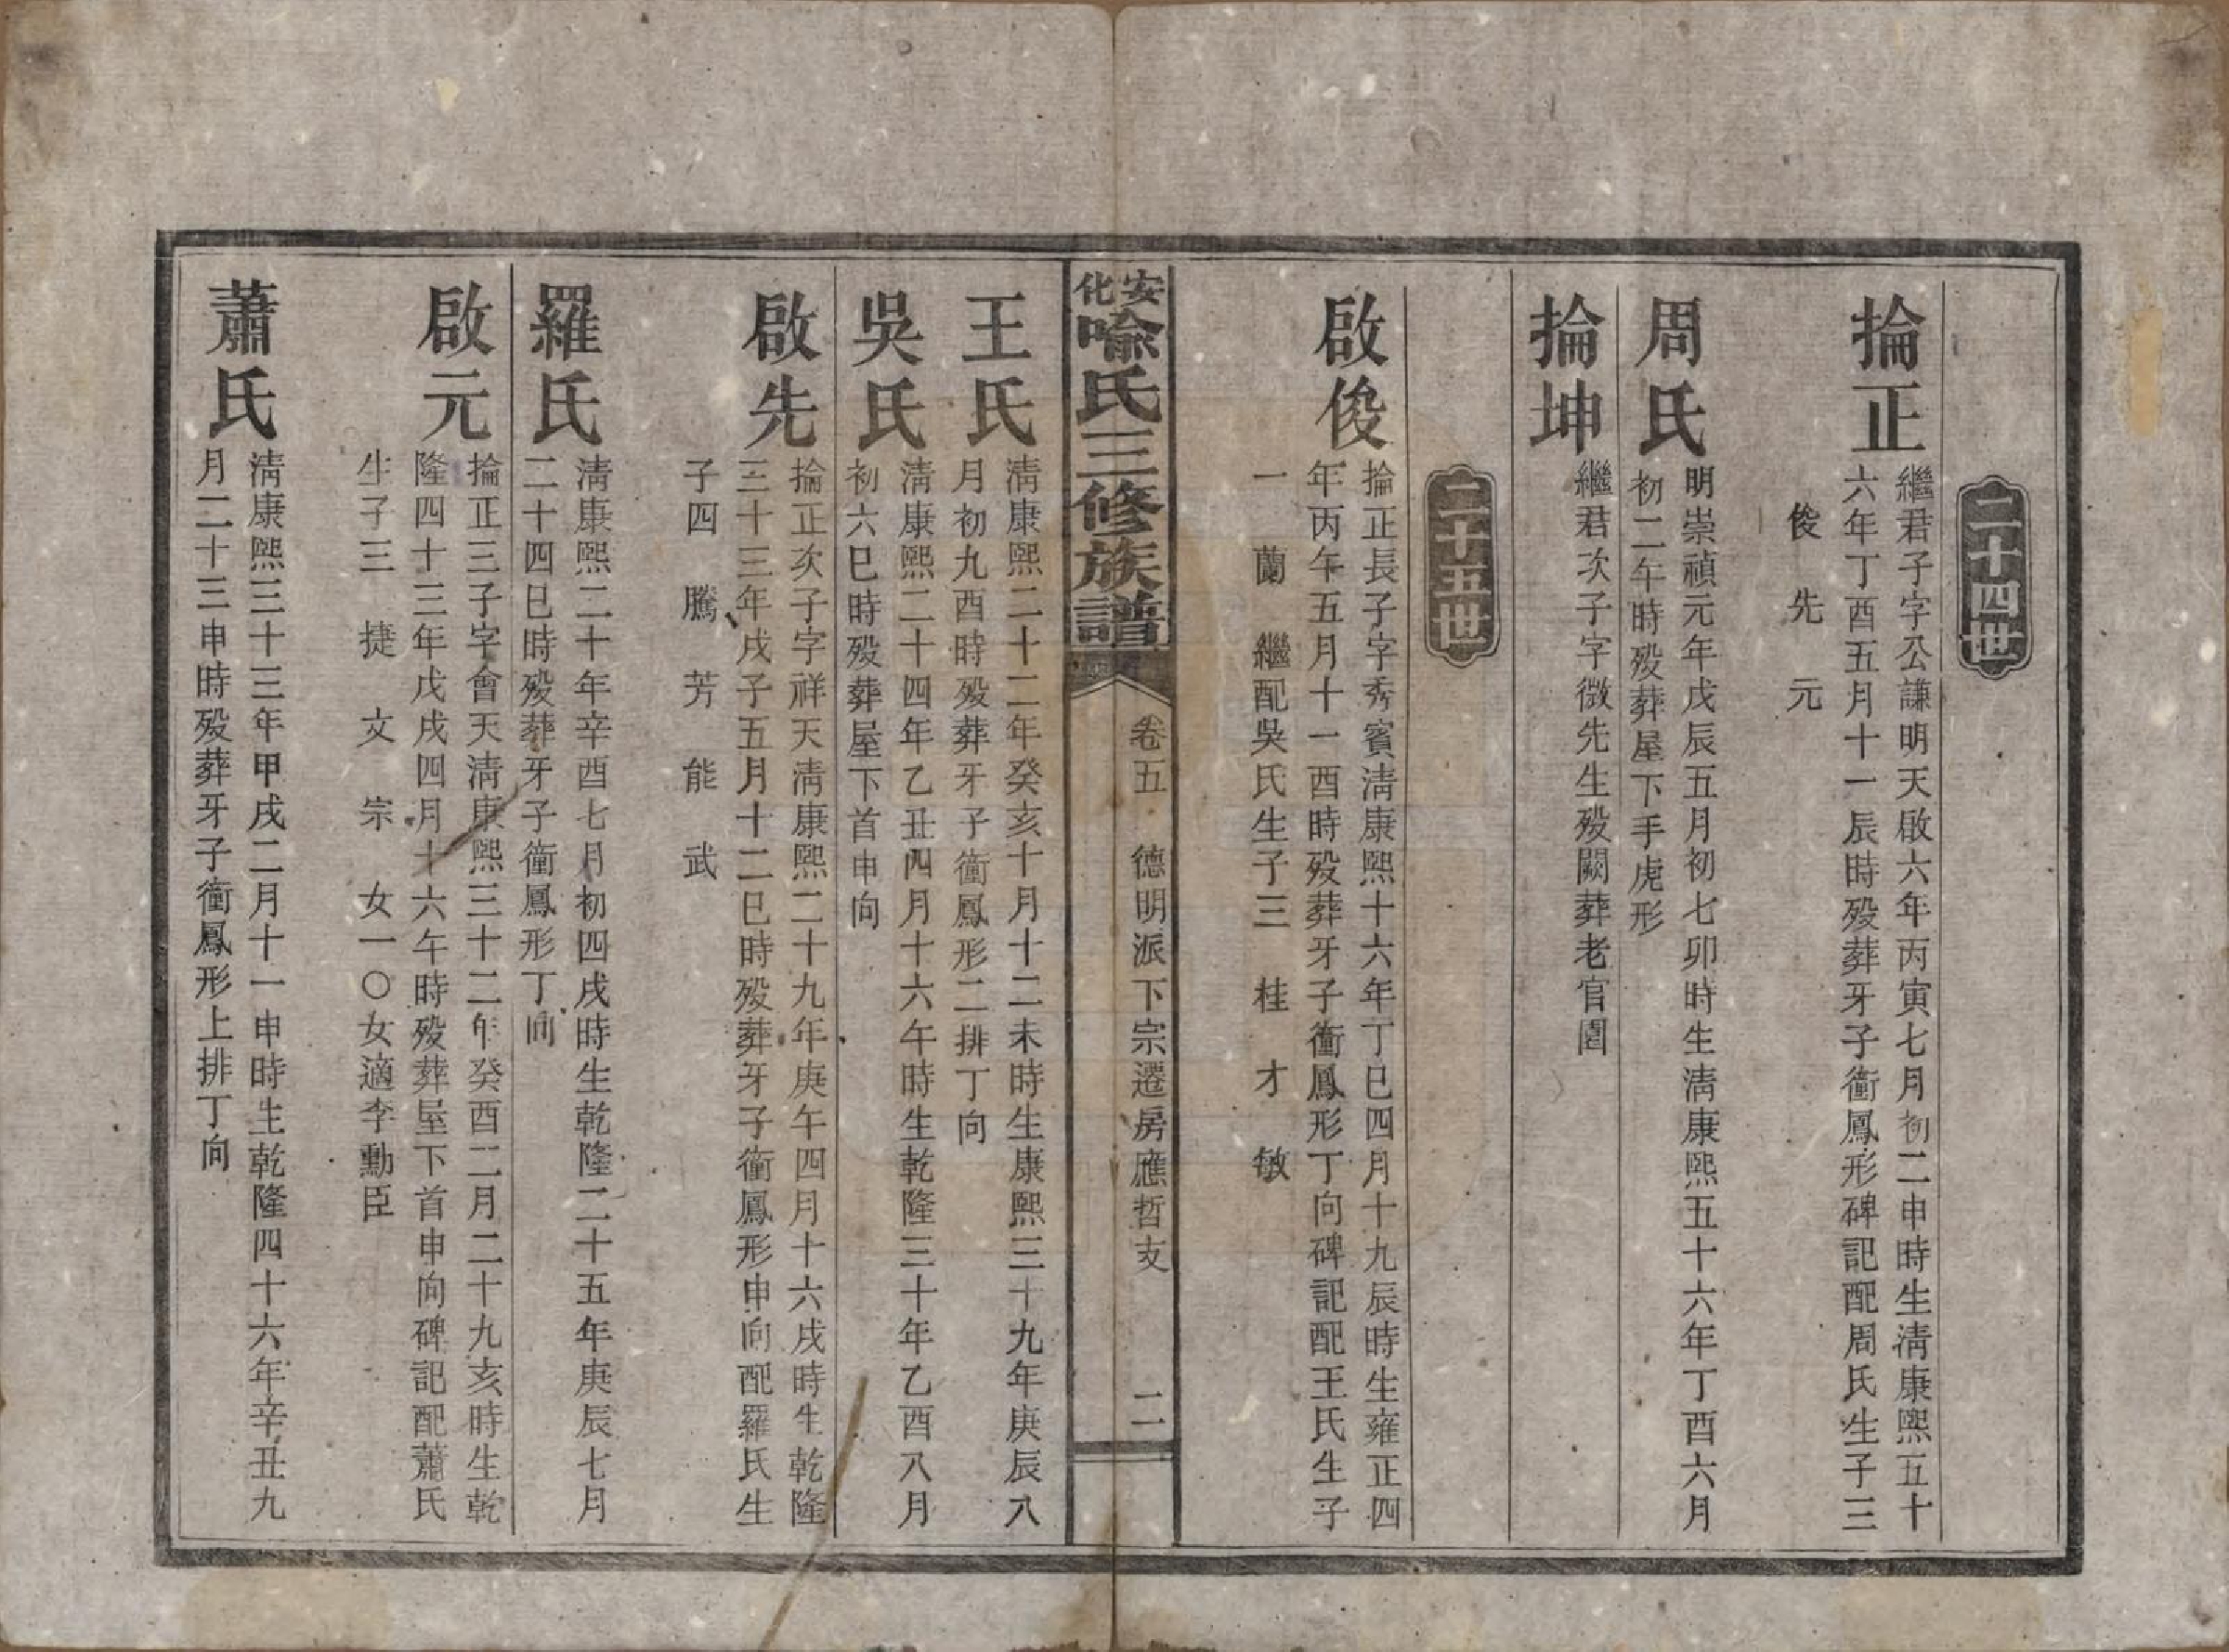 二十四世
掄正
繼君子字公謙明天啟六年丙寅七月初二申時生淸康熙五十
六年丁酉五月十一辰時殁葬牙子衝鳳形碑記配周氏生子三
俊 先 元
周氏
明崇禎元年戊辰五月初七卯時生淸康熙五十六年丁酉六月
初二午時殁葬屋下手虎形
掄坤
繼君次子字微先生殁闕葬老官園
二十五世
啟俊
掄正長子字秀賓淸康熙十六年丁巳四月十九辰時生雍正四
年丙午五月十一酉時殁葬牙子衝鳳形丁向碑記配王氏生子
一 蘭 繼配吳氏生子三 桂 才 敏
安化喻氏三修族譜 卷五 德明派下宗遷房應哲支 二
王氏
淸康熙二十二年癸亥十月十二未時生康熙三十九年庚辰八
月初九酉時殁葬牙子衝鳳形二排丁向
吳氏
淸康熙二十四年乙丑四月十六午時生乾隆三十年乙酉八月
初六巳時殁葬屋下首申向
啟先
掄正次子字祥天淸康熙二十九年庚午四月十六戌時生乾隆
三十三年戌子五月十二巳時殁葬牙子衝鳳形申向配羅氏生
子四 騰 芳 能 武
羅氏
淸康熙二十年辛酉七月初四戌時生乾隆二十五年庚辰七月
二十四巳時殁葬牙子衝鳳形丁向
啟元
掄正三子字會天淸康熙三十二年癸酉二月二十九亥時生乾
隆四十三年戊戌四月十六午時殁葬屋下首申向碑記配蕭氏
生子三 捷 文 宗 女一〇女適李勳臣
蕭氏
淸康熙三十三年甲戌二月十一申時生乾隆四十六年辛丑九
月二十三申時殁葬牙子衝鳳形上排丁向